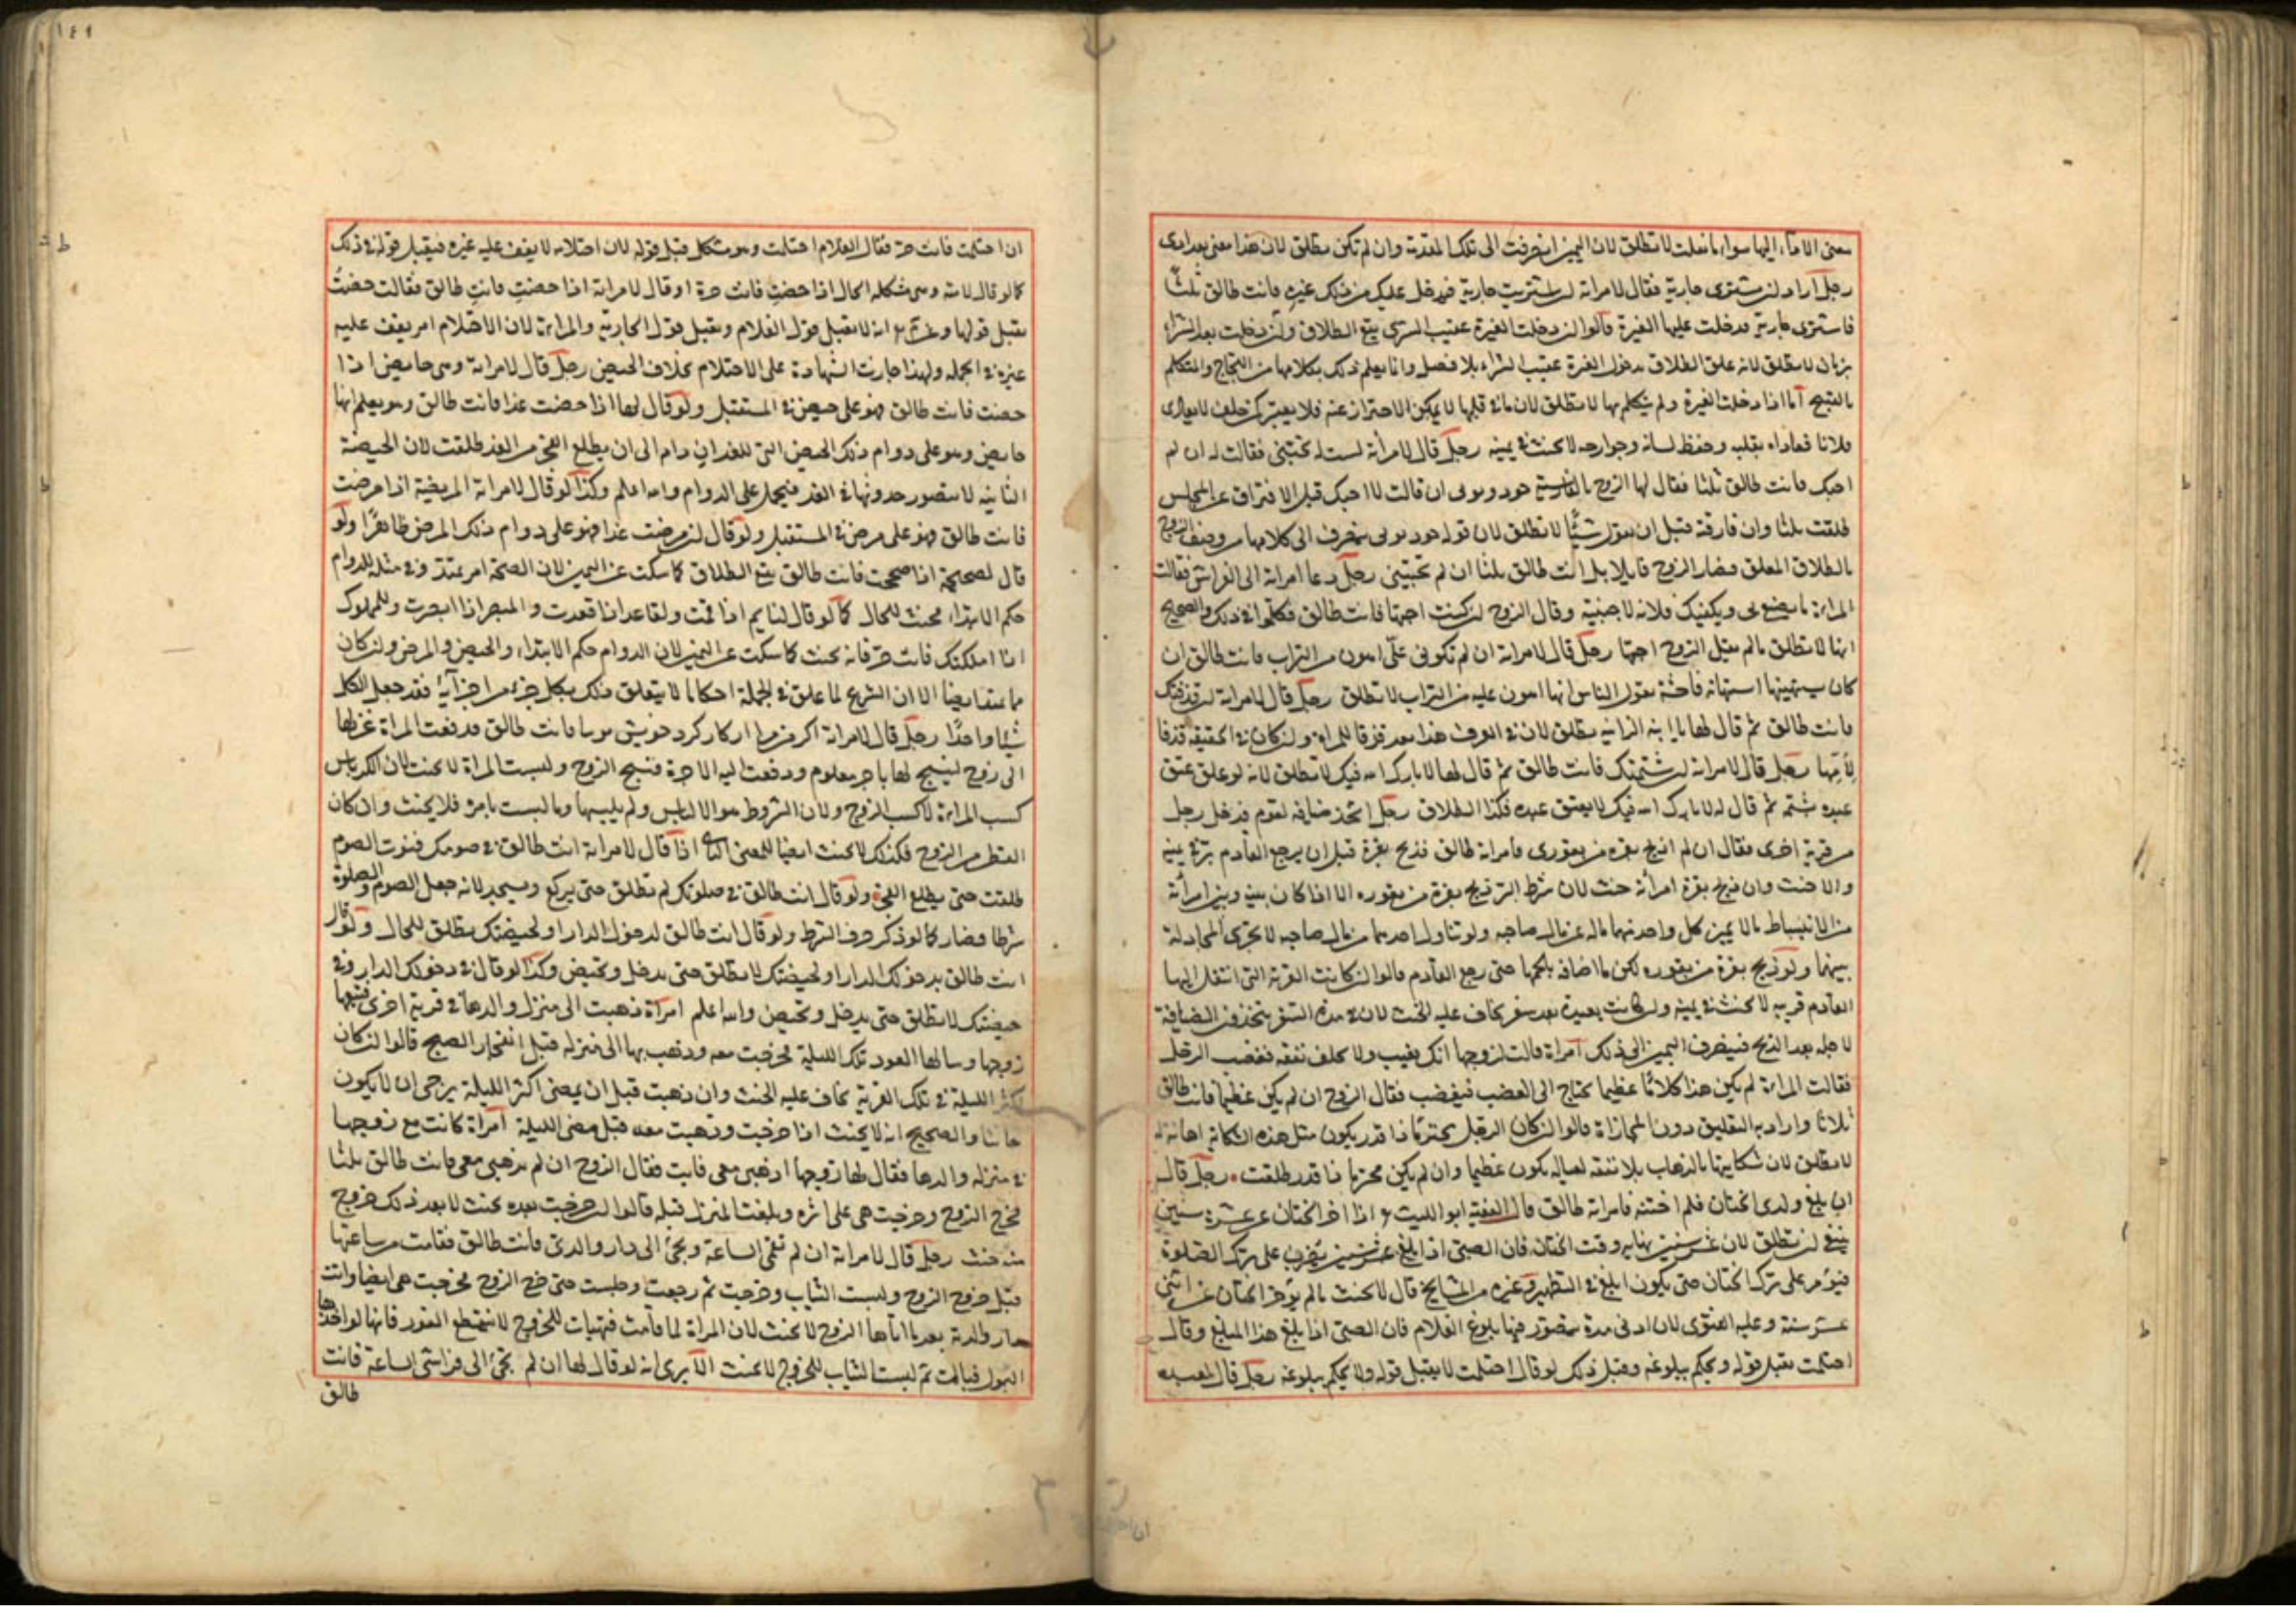 رجل اراد ان يشترى جارية فقال لامراته ان اشتريت جارية فدخل عليك من ذلك غيرة فانت طالق ثلثا
فاشترى جارية فدخلت عليها الغيرة قالوا ان دخلت الغيرة عقيب الشرى يقع الطلاق وان دخلت بعد الشراء
بزمان لا تطلق لانه علق الطلاق بدخول الغيرة عقيب الشراء بلا فصل وانما يعلم ذلك بكلامها من اللجاج والتكلم
بالقبيح اما اذا دخلت الغيرة ولم يتكلم بها لا تطلق لان ما فى قلبها لا يمكن الاحتراز عنه فلا يعتبر كمن حلف لا يعادى
فلانا فعاداه بقلبه وحفظ لسانه وجوارحه لا يحنث فى يمينه رجل قال لامرأته لست تحبينى فقالت له ان لم
احبك فانت طالق ثلثا فقال لها الزوج بالفارسية خود
طلقت ثلثا وان فارقته قبل ان تقول شيئا لا تطلق لان قوله
بالطلاق المعلق فصار الزوج قايلا بل انت طالق ثلثا ان لم تحبينى رجل دعا امراته الى الفراش فقالت
المراة ما يصنع بى ويكفيك فلانة لاجنبية وقال الزوج ان كنت احبها فانت طالق فتكلموا فى ذلك والصحيح
انها لا تطلق ما لم يقل الزوج احبها رجل قال لامراته ان لم تكونى على اهون من التراب فانت طالق ان
كان يستهينها استهانة فاحشة يقول الناس انها اهون عليه من التراب لا تطلق رجل قال لامراته ان قذفتك
فانت طالق ثم قال لها يا ابنة الزانية تطلق لان فى العرف هذا يعد قذفا للمراة وان كان فى الحقيقة قذفا
لأمها رجل قال لامراته ان شتمتك فانت طالق ثم قال لها لا بارك الله فيك لا تطلق لانه لو علق عتق
عبده بشتمه ثم قال له لا بارك الله فيك لا يعتق عبده فكذا الطلاق رجل اتخذ ضيافة لقوم فدخل رجل
من قرية اخرى فقال ان لم اذبح بقرة من بقورى فامراته طالق فذبح بقرة قبل ان يرجع القادم بر فى يمينه
والا حنث وان ذبح بقرة امرأته حنث لان شرط البر ذبح بقرة من بقوره الا اذا كان بينه وبين امرأته
من الانبساط ما لا يميز كل واحد منهما ماله عن مال صاحبه ولو تناول احدهما من مال صاحبه لا يجرى المجادلة
بينهما ولو ذبح بقرة من بقوره لكن ما اضافه بلحمها حتى رجع القادم قالوا ان كانت القرية التى انتقل اليها
القادم قريبة لا يحنث فى يمينه وان كانت بعيدة يعد سفرا يخاف عليه الحنث لان فى هذه السفر يتخذون الضيافة
لاجله بعد الذبح فينصرف اليمين الى ذلك امراة قالت لزوجها انك تغيب ولا تخلف نفقة فغضب الرجل
فقالت المراة لم يكن هذا كلاما عظيما يحتاج الى الغضب فيغضب فقال الزوج ان لم يكن عظيما فانت طالق
ثلاثا واراد به التعليق دون المجازاة قالوا ان كان الرجل محترما ذا قدر يكون مثل هذه الشكاية اهانة له
لا تطلق لان شكايتها بالذهاب بلا نفقة لعياله يكون عظيما وان لم يكن محترما ذا قدر طلقت رجل قال
ان بلغ ولدى الختان فلم اختنه فامراته طالق قال الفقيه ابو الليث اذا اخر الختان عن عشر سنين
ينبغى ان تطلق لان عشر سنين نهاية وقت الختان فان الصبى اذا بلغ عشر سنين يضرب على ترك الصلوة
فيؤمر على ترك الختان حتى يكون ابلغ فى التطهير وغيره من المشايخ قال لا يحنث ما لم يؤخر الختان عن اثنى
عشر سنة وعليه الفتوى لان ادنى مدة يتصور فيها بلوغ الغلام فان الصبى اذا بلغ هذا المبلغ وقال
احتلمت يقبل قوله ويحكم ببلوغه وقبل ذلك لو قال احتلمت لا يقبل قوله ولا يحكم ببلوغه رجل قال لعبده
١٤٩
ان احتلمت فانت حر فقال الغلام احتلمت وهو مشكل قبل قوله لان احتلامه لا يقف عليه غيره فيقبل قوله فى ذلك
كما لو قال لامته وهى مشكلة الحال اذا حضت فانت حرة او قال لامراته اذا حضت فانت طالق فقالت حضت
يقبل قولها وعن انه لا يقبل قول الغلام ويقبل قول الجارية والمراة لان الاحتلام امر يقف عليه
غيره فى الجملة ولهذا جازت الشهادة على الاحتلام بخلاف الحيض رجل قال لامراته وهى حايض اذا
حضت فانت طالق فهو على حيض فى المستقبل ولو قال لها اذا حضت غدا فانت طالق وهو يعلم انها
حايض وهو على دوام ذلك الحيض الى الغد ان دام الى ان يطلع الفجر من الغد طلقت لان الحيضة
الثانية لا يتصور حدوثها فى الغد فيحمل على الدوام والله اعلم وكذا لو قال لامراته المريضة اذا مرضت
فانت طالق فهو على مرض فى المستقبل ولو قال ان مرضت غدا فهو على دوام ذلك المرض ظاهرا ولو
قال لصحيحة اذا صححت فانت طالق يقع الطلاق كما سكت عن اليمين لان الصحة امر يمتد وفى مثله للدوام
حكم الابتداء فيحنث للحال كما لو قال لنايم اذا نمت ولقاعد اذا قعدت والمبصر اذا ابصرت وللمملوك
اذا املكتك فانت حر فانه يحنث كما سكت عن اليمين لان الدوام حكم الابتداء والحيض والمرض وان كان
مما يمتد ايضا الا ان الشرع لما علق فى الجملة احكاما لا يتعلق ذلك بكل جزء من اجزآئه فقد جعل الكل
شيئا واحدا رجل قال لامراته اكر من
الى زوج لينسج لها باجر معلوم ودفعت اليه الاجرة فنسج الزوج ولبست المراة لا يحنث لان الكرباس
كسب المراة لا كسب الزوج ولان الشروط هو الالباس ولم يلبسها وما لبست بامره فلا يحنث وان كان
القطن من الزوج فكذلك لا يحنث ايضا للمعنى الثانى اذا قال لامراته انت طالق فى صومك فنوت الصوم
طلقت حتى يطلع الفجر ولو قال انت طالق فى صلوتك لم تطلق حتى يركع ويسجد لانه جعل الصوم والصلوة
شرطا فصار كما لو ذكر حرف الشرط ولو قال انت طالق لدخول الدار او لحيضتك تطلق للحال ولو قال
انت طالق بدخولك الدار او لحيضتك لا تطلق حتى يدخل وتحيض وكذا لو قال فى دخولك الدار وفى
حيضتك لا تطلق حتى يدخل وتحيض والله اعلم امراة ذهبت الى منزل والدها فى قرية اخرى فتبعها
زوجها وسالها العود تلك الليلة فخرجت معه وذهب بها الى منزله قبل انفجار الصبح قالوا ان كان
اكثر الليلة فى تلك القرية يخاف عليه الحنث وان ذهبت قبل ان يمضى اكثر الليلة يرجى ان لا يكون
حانثا والصحيح انه لا يحنث اذا خرجت وذهبت معه قبل مضى الليلة امراة كانت مع زوجها
فى منزله والدها فقال لها زوجها اذهبى معى فابت فقال الزوج ان لم تذهبى معى فانت طالق ثلثا
فخرج الزوج وخرجت هى على اثره وبلغت المنزل قبله قالوا ان خرجت بعده يحنث لا يعد ذلك خروج
رجل قال لامراته ان لم تقمى الساعة وتجئ الى دار والدى فانت طالق فقامت من ساعتها
قبل خروج الزوج ولبست الثياب وخرجت ثم رجعت وجلست حتى خرج الزوج فخرجت هى ايضا واتت
دار والدته بعد ما اتاها الزوج لا يحنث لان المراة لما قامت فتهيات للخروج لا ينقطع الفور فانها لو اخذها
البول فبالت ثم لبست الثياب للخروج لا يحنث الا يرى انه لو قال لها ان لم تجئ الى فراشى الساعة فانت
طالق